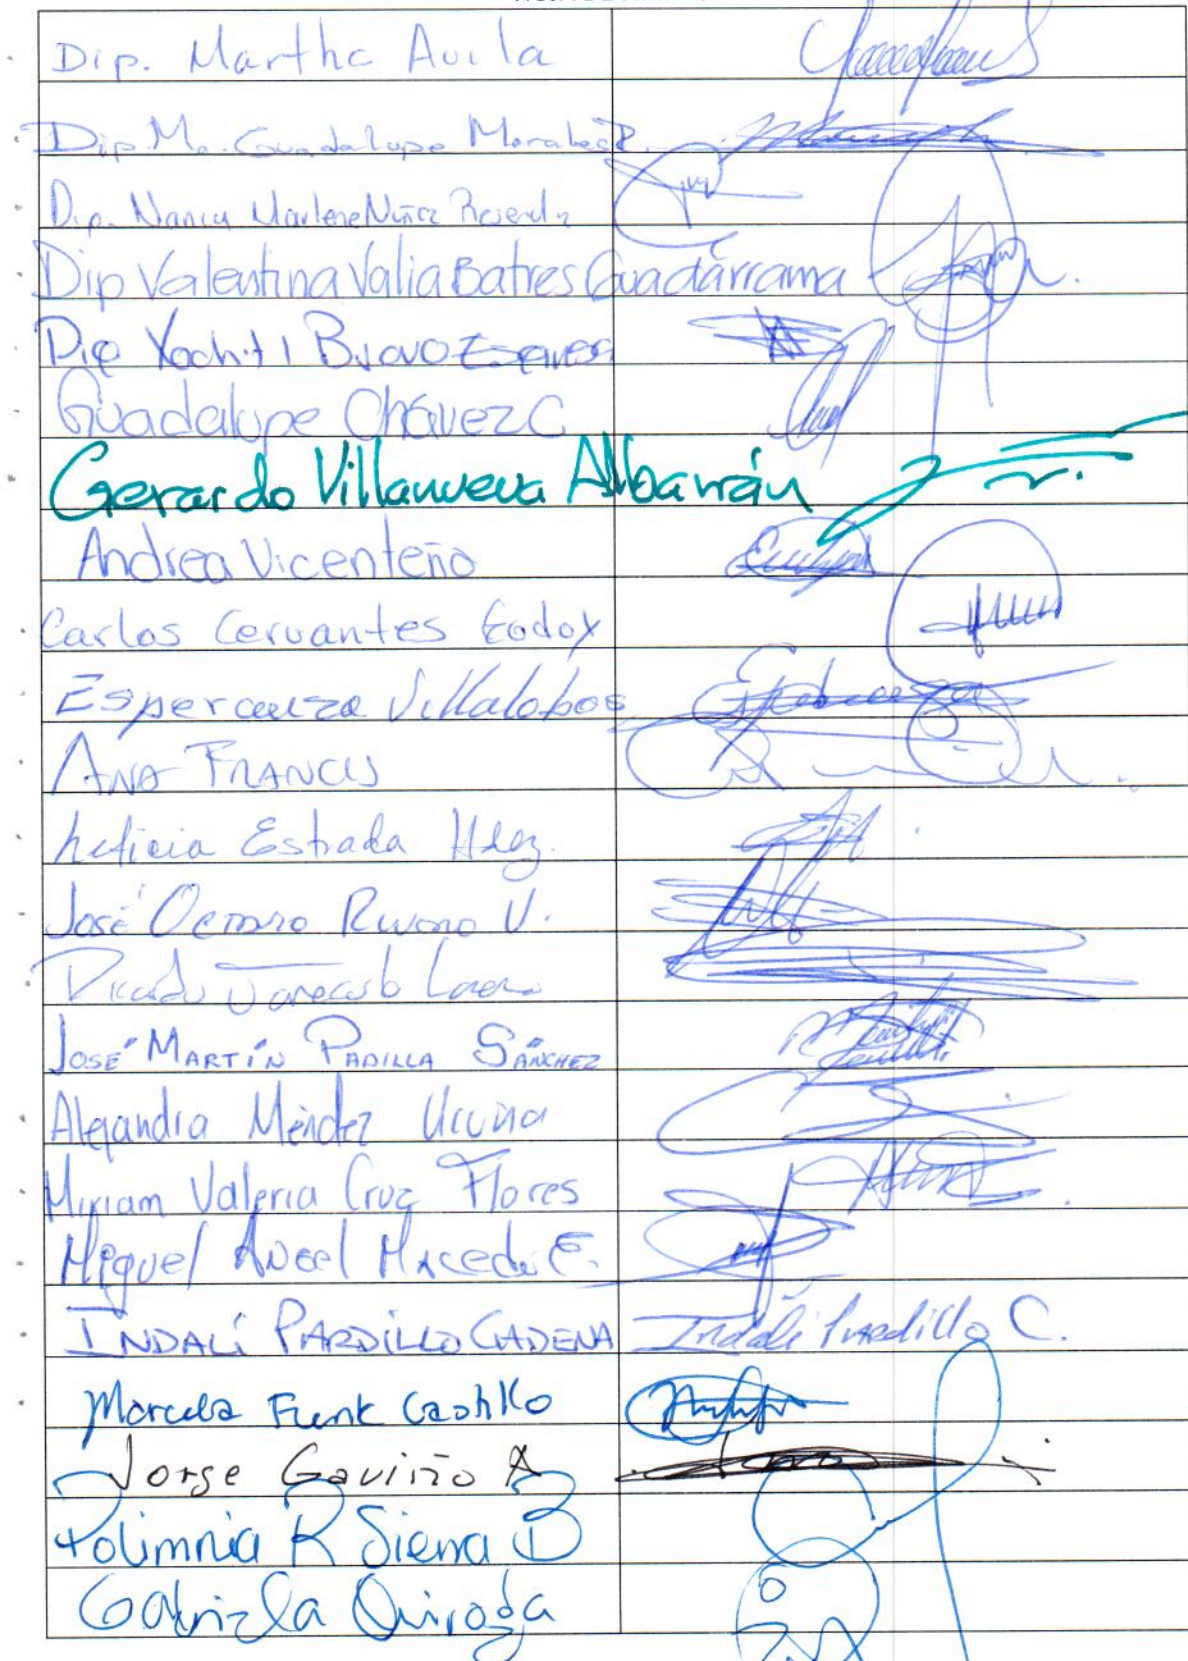 Dip. Martha Avila
Dip. Ma. Guadalupe Morales R.
Dip. Nancy Marlene Núñez Resendiz
Dip Valentina Valia Batres Guadarrama
Dip Xochitl Bravo Espinosa
Guadalupe Chávez C
Gerardo Villanueva Albarrán
Andrea Vicenteño
Carlos Cervantes Godoy
Esperanza Villalobos
ANA FRANCIS
Leticia Estrada Hdez.
José Octavio Rivero V.
Ricardo Janecarlo
JOSÉ MARTÍN PADILLA SÁNCHEZ
Alejandra Méndez Vicuña
Miriam Valeria Cruz Flores
Miguel Ángel Macedo E.
INDALÍ PARDILLO CADENA Indalí Pardillo C.
Marcela Fuente Castillo
Jorge Gaviño A
Polimnia R Sierra B
Gabriela Quiroga